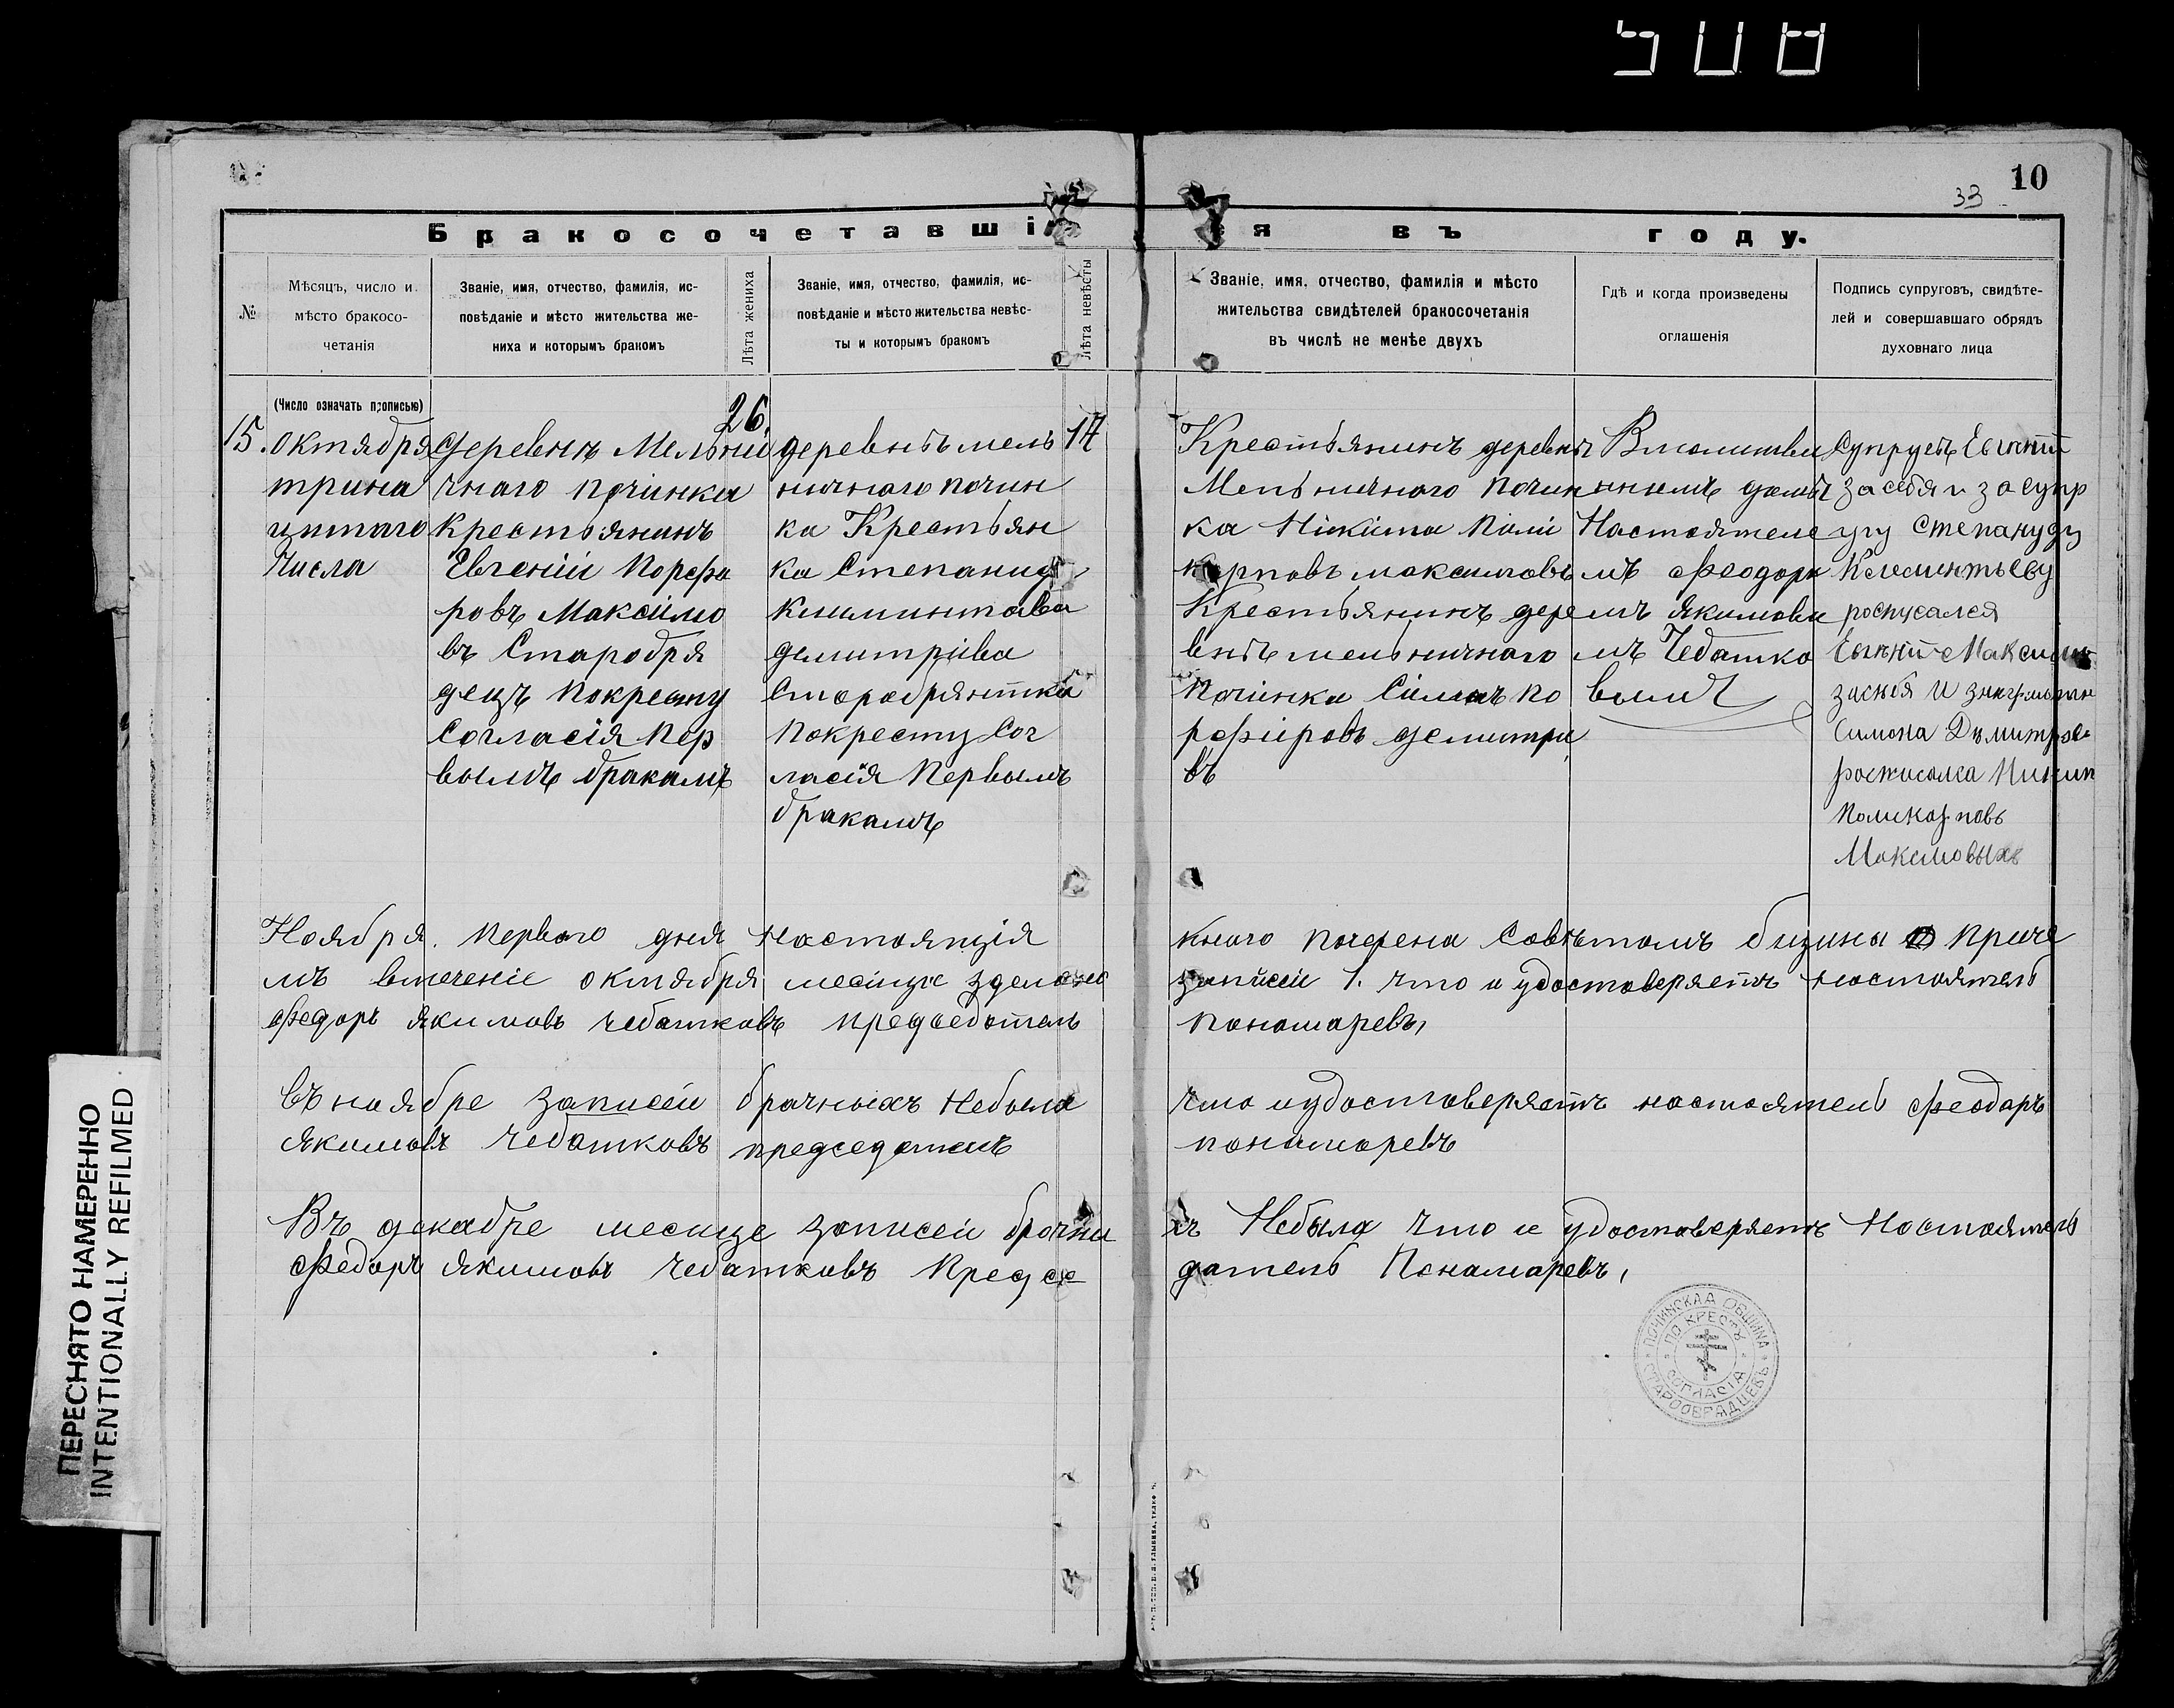 508
10
33
Бракосочетавшіеся въ году.
№
Мѣсяцъ, число и
мѣсто бракосо-
четанія
Званіе, имя, отчество, фамилія, ис-
повѣданіе и мѣсто жительства же-
ниха и которымъ бракомъ
Лѣта жениха
Званіе, имя, отчество, фамилія, ис-
повѣданіе и мѣсто жительства невѣс-
ты и которымъ бракомъ
Лѣта невѣсты
Званіе, имя, отчество, фамилія и мѣсто
жительства свидѣтелей бракосочетанія
въ числѣ не менѣе двухъ
Гдѣ и когда произведены
оглашенія
Подпись супруговъ, свидѣте-
лей и совершавшаго обрядъ
духовнаго лица
(Число означать прописью)
15.
октября
трина
цптаго
Числа
деревнѣ Мельни
чнаго починка
крестьянинъ
Евгеній Порфи
ровъ Максимо
въ Старобря
децъ покресту
Согласія Пер
вымъ бракамъ
26
деревнѣ мель
ничнаго почин
ка Крестьян
ка Степанид
климинтава
димитріва
Старобрятка
Покресту Сог
ласія Первымъ
бракамъ
17
Крестьянинъ деревнѣ
Мельничнаго почин
ка Нікита Полі
карповъ максимовъ
Крестьянинъ дере
внѣ мельничнаго
почінка Сімонъ по
рфіровъ демитри
въ
Вмолитвы
ннымъ домѣ
Настоятеле
мъ Феодоро
мъ Якимовы
мъ Чебатко
вымъ
Супругъ Евгѣній
за себя и за супр
угу Степаниду
Клементьеву
роспусался
Евгѣній Максимов
Симона Димитрова
Поликарповъ
Максимовыхъ
Ноября. Первого дня настоящія
мъ втеченіе октября месіца зделано
Федоръ Якимовъ Чебатковъ председатель
книго Совѣтомъ общины Приче
записеи 1. что и удостоверяетъ настоятель
Понамаревъ,
въ ноября записеи брачныхъ небыла
Якимовъ Чебатковъ председатель
что иудостоверяетъ настоятель Феодоръ
понамаревъ
Въ декабре месице записеи брачны
Федоръ Якимовъ Чебатковъ Предсе
хъ Небыла что и удостоверяетъ Настоятель
датель Понамаревъ,
ПОЧИНСКАЯ ОБЩИНА
СТАРООБРЯДЦЕВЪ
ПО КРЕСТУ
СОГЛАСІЯ
ПЕРЕСНЯТО НАМЕРЕННО
INTENTIONALLY REFILMED